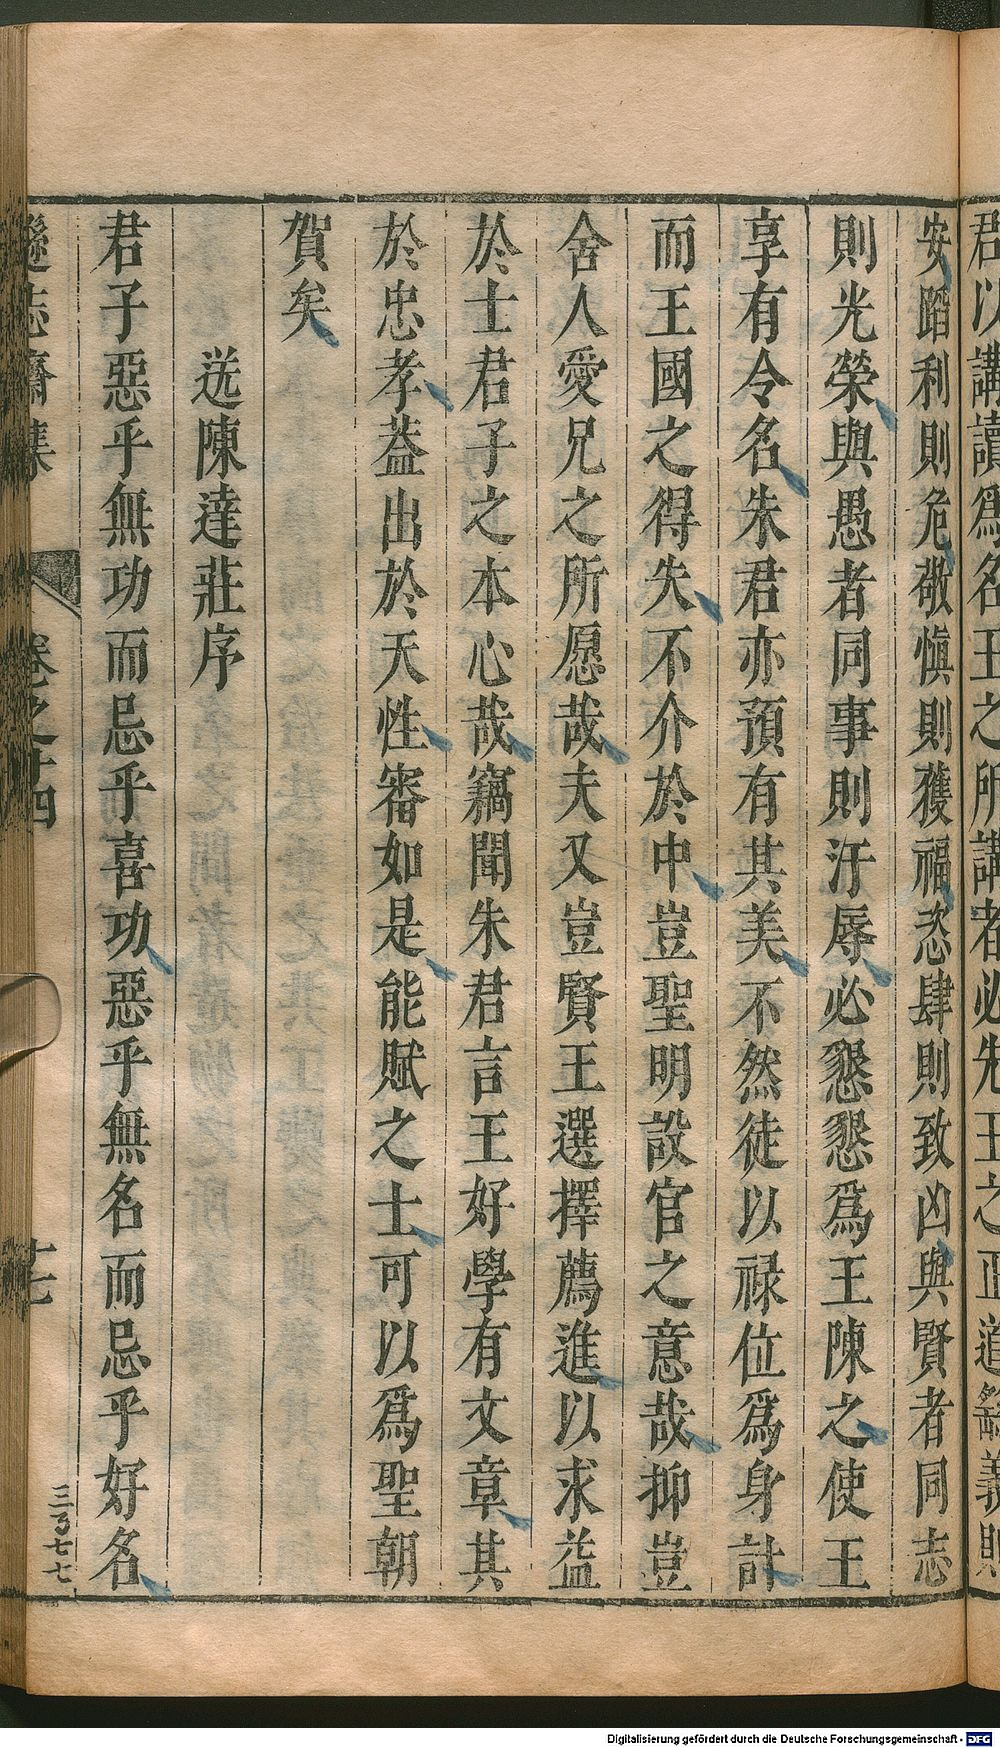 君以講讀爲名王之所講者必先王之正道綴義則
安蹈利則危敬愼則獲福恣肆則致凶與賢者同志
則光榮與愚者同事則汙辱必懇懇爲王陳之使王
享有令名朱君亦預有其美不然徒以禄位爲身計
而王國之得失不介於中豈聖明設官之意哉抑豈
舍人愛兄之所愿哉夫又豈賢王選擇薦進以求益
於士君子之本心哉竊聞朱君言王好學有文章其
於忠孝葢出於天性審如是能賦之士可以爲聖朝
賀矣
送陳達莊序
君子惡乎無功而忌乎喜功惡乎無名而忌乎好名
遜志齋集 卷之十四 十七
三百七七
Digitalisierung gefördert durch die Deutsche Forschungsgemeinschaft - DFG